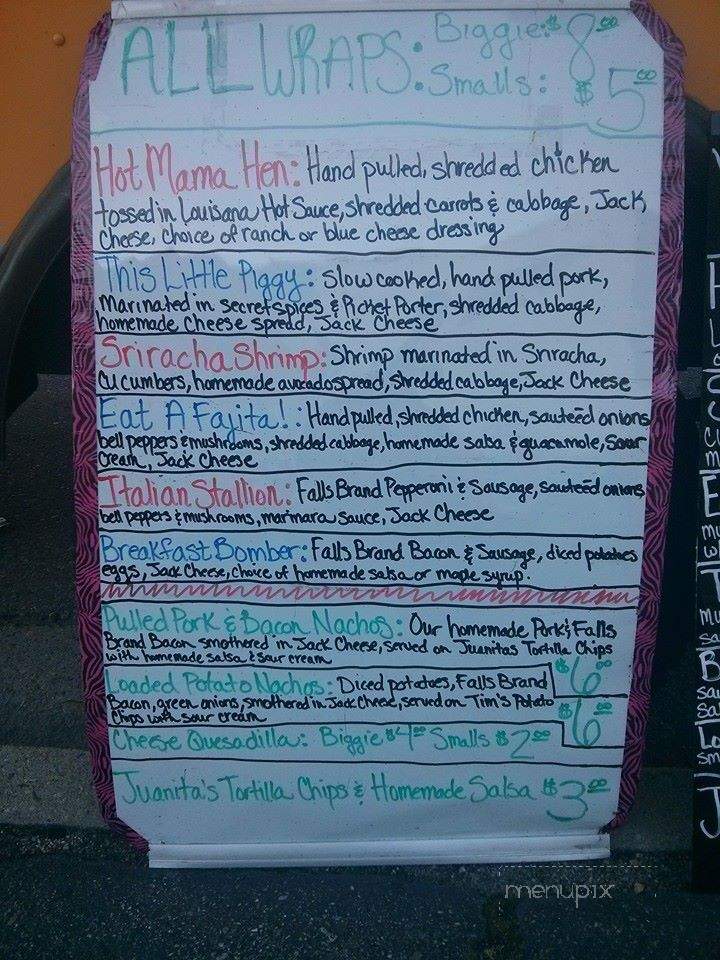 ALL WRAPS: Biggie: $8.00
Smalls: $5.00
Hot Mama Hen: Hand pulled, shredded chicken
tossed in Louisana Hot Sauce, shredded carrots & cabbage, Jack
Cheese, choice of ranch or blue cheese dressing
This Little Piggy: Slow cooked, hand pulled pork,
Marinated in secret spices & Picket Porter, shredded cabbage,
homemade cheese spread, Jack Cheese
Sriracha Shrimp: Shrimp marinated in Sriracha,
Cucumbers, homemade avacado spread, shredded cabbage, Jack Cheese
Eat A Fajita!: Hand pulled, shredded chicken, sauteéd onions
bell peppers & mushrooms, shredded cabbage, homemade salsa & guacamole, Sour
Cream, Jack Cheese
Italian Stallion: Falls Brand Pepperoni & Sausage, sauteéd onions,
bell peppers & mushrooms, marinara sauce, Jack Cheese
Breakfast Bomber: Falls Brand Bacon & Sausage, diced potatoes
eggs, Jack Cheese, choice of homemade salsa or maple syrup.
Pulled Pork & Bacon Nachos: Our homemade Pork & Falls
Brand Bacon smothered in Jack Cheese, served on Juanitas Tortilla Chips
with homemade salsa & sour cream $6.00
Loaded Potato Nachos: Diced potatoes, Falls Brand
Bacon, green onions, smothered in Jack Cheese, served on Tim's Potato
Chips with sour cream $6.00
Cheese Quesadilla: Biggie $4.00 Smalls $2.00
Juanita's Tortilla Chips & Homemade Salsa $3.00
menupix